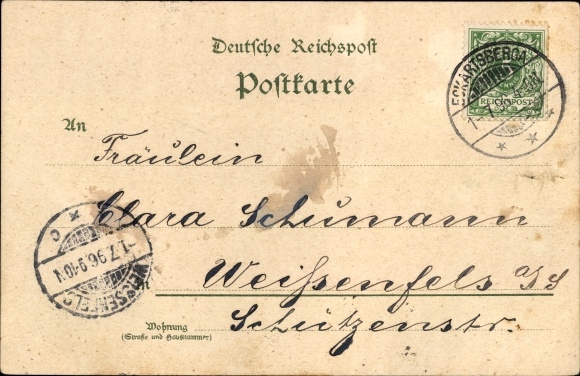 Deutsche Reichspost
Postkarte
ECKARTSBERGA
REICHSPOST
An
Fräulein
Clara Schumann
WEISSENFELS
1.7.96.9-10N
c
in Weißenfels a/S
Schützenstr.
Wohnung
(Straße und Hausnummer)